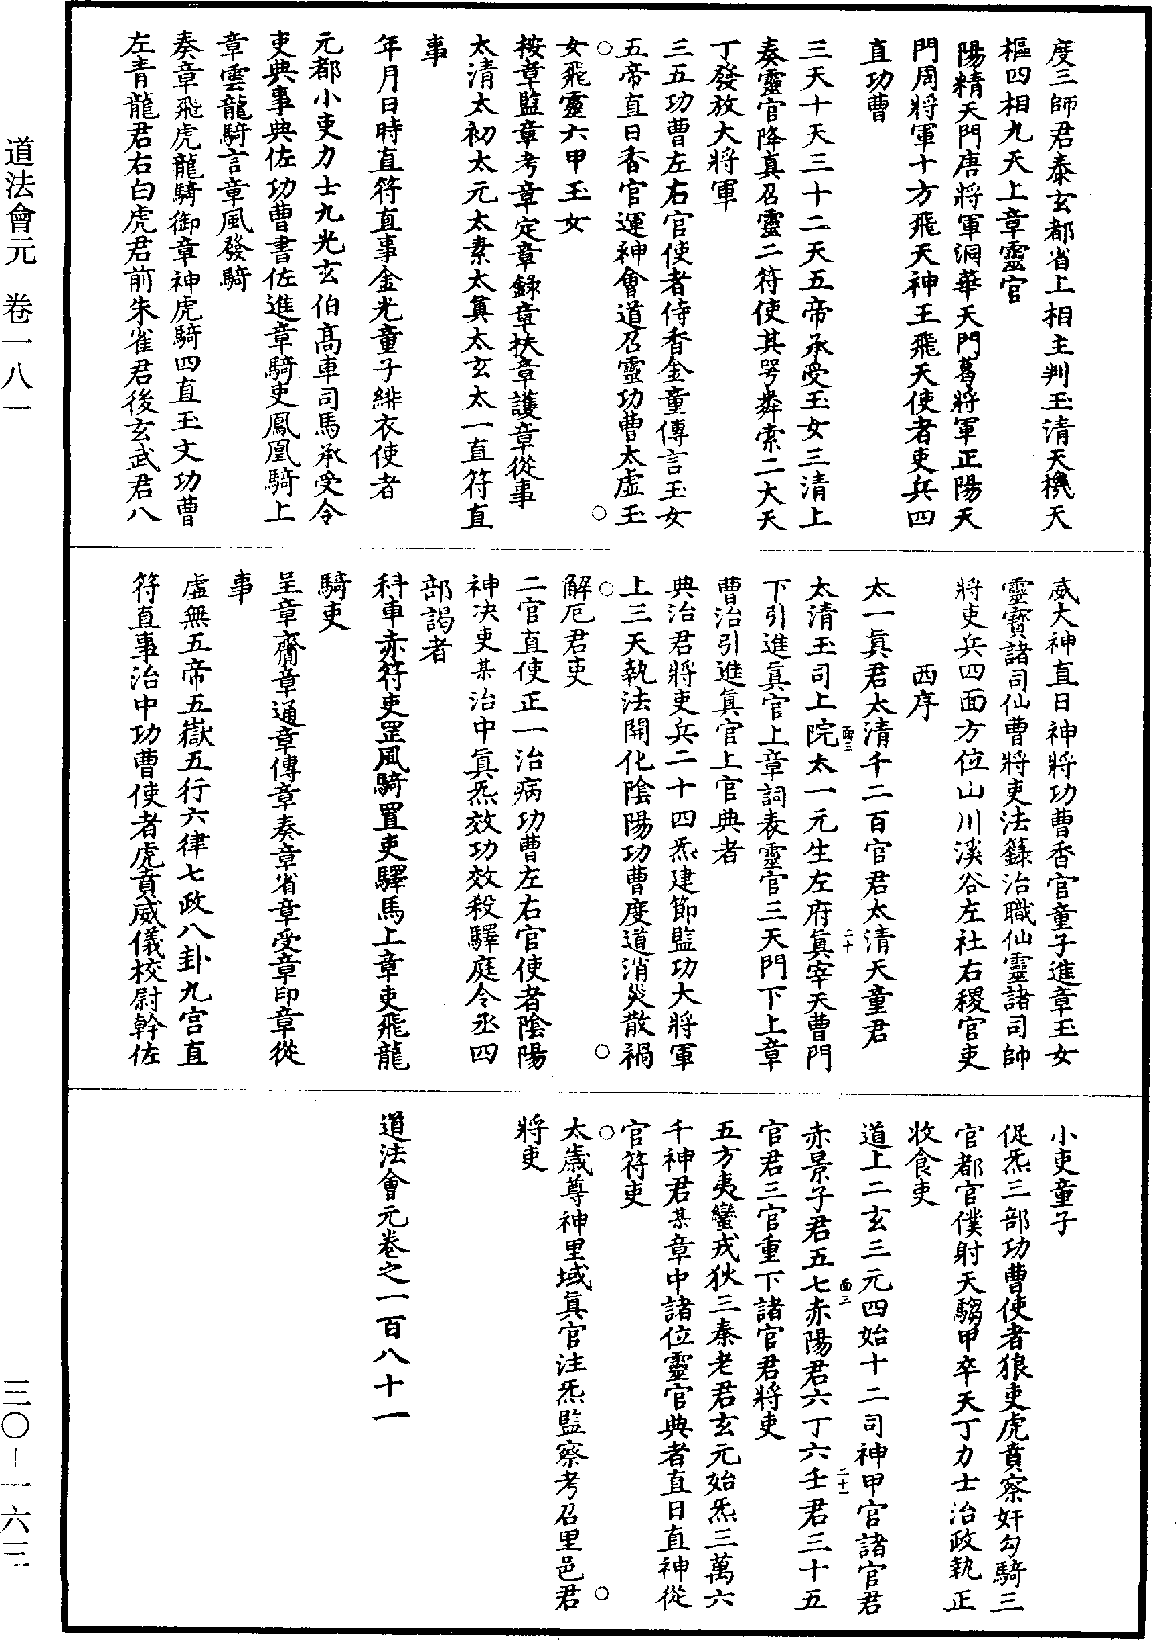 度三師君泰玄都省上相主判玉清天機天
樞四相九天上章靈官
陽精天門唐將軍洞華天門葛將軍正陽天
門周將軍十方飛天神王飛天使者吏兵四
直功曹
三天十天三十二天五帝承受玉女三清上
奏靈官降真召靈二符使其咢粦索二大天
丁發放大將軍
三五功曹左右官使者侍香金童傳言玉女
五帝直日香官運神會道召靈功曹太虛玉
女飛靈六甲玉女
按章監章考章定章錄章扶章護章從事
太清太初太元太素太真太玄太一直符直
事
年月日時直符直事金光童子緋衣使者
元都小吏力士九光玄伯高車司馬承受令
吏典事典佐功曹書佐進章騎吏鳳凰騎上
章雲龍騎言章風發騎
奏章飛虎龍騎御章神虎騎四直玉文功曹
左青龍君右白虎君前朱雀君後玄武君八
威大神直日神將功曹香官童子進章玉女
靈寶諸司仙曹將吏法籙治職仙靈諸司帥
將吏兵四面方位山川溪谷左社右稷官吏
西序
太一真君太清千二百官君太清天童君
太清玉司上院太一元生左府真宰天曹門
下引進真官上章詞表靈官三天門下上章
曹治引進真官上官典者
典治君將吏兵二十四炁建節監功大將軍
上三天執法開化陰陽功曹度道消災散禍
解厄君吏
二官直使正一治病功曹左右官使者陰陽
神決吏某治中真炁效功效殺驛庭令丞四
部謁者
科車赤符吏罡風騎置吏驛馬上章吏飛龍
騎吏
呈章齎章通章傳章奏章省章受章印章從
事
虛無五帝五嶽五行六律七政八卦九宮直
符直事治中功曹使者虎賁威儀校尉幹佐
小吏童子
促炁三部功曹使者狼吏虎賁察奸勾騎三
官都官僕射天騶甲卒天丁力士治政執正
收食吏
道上二玄三元四始十二司神甲官諸官君
赤景子君五七赤陽君六丁六壬君三十五
官君三官重下諸官君將吏
五方夷蠻戎狄三秦老君玄元始炁三萬六
千神君某章中諸位靈官典者直日直神從
官符吏
太歲尊神里域真官注炁監察考召里邑君
將吏
道法會元卷之一百八十一
道法會元 卷一八一
三〇－一六三